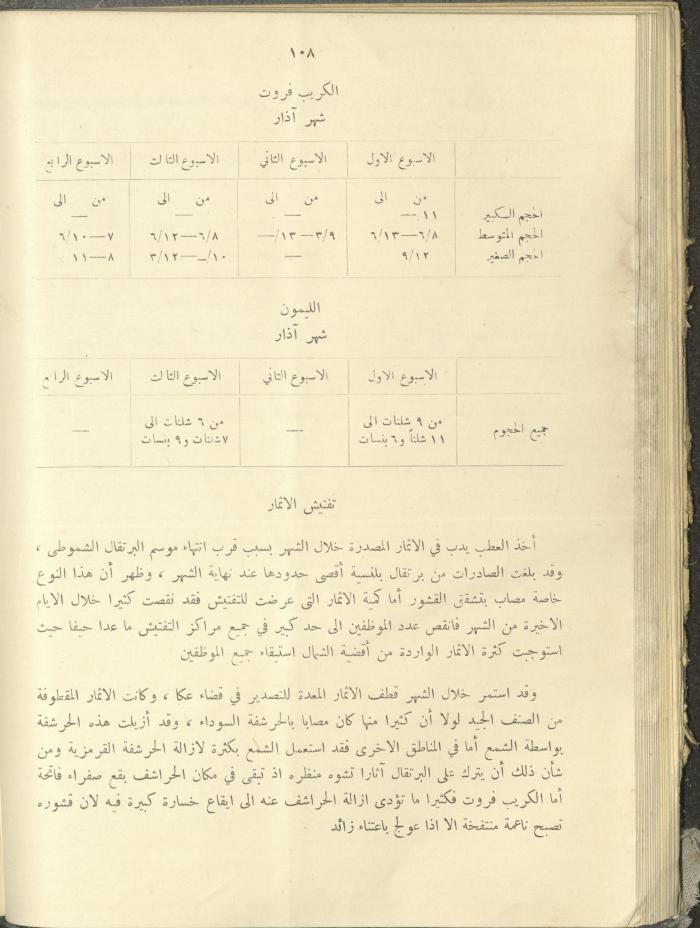 ١٠٨
الكريب فروت
شهر آذار
الاسبوع الاول الاسبوع الثاني الاسبوع الثالث الاسبوع الرابع
من الى من الى من الى من الى
الحجم الكبير ١١ — — — —
الحجم المتوسط ٦/٨—٦/١٣ ٣/٩—١٣/— ٦/٨—٦/١٢ ٧—٦/١٠
الحجم الصغير ٩/١٢ — ١٠/—٣/١٢ ٨—١١
الليمون
شهر آذار
الاسبوع الاول الاسبوع الثاني الاسبوع الثالث الاسبوع الرابع
من ٩ شلنات الى من ٦ شلنات الى
جميع الحجوم — —
١١ شلناً و٦ بنسات ٧ شلنات و٩ بنسات
تفتيش الاثمار
أخذ العطب يدب في الاثمار المصدرة خلال الشهر بسبب قرب انتهاء موسم البرتقال الشموطي ،
وقد بلغت الصادرات من برتقال بلنسية أقصى حدودها عند نهاية الشهر ، وظهر أن هذا النوع
خاصة مصاب بتشقق القشور أما كمية الاثمار التى عرضت للتفتيش فقد نقصت كثيرا خلال الايام
الاخيرة من الشهر فانقص عدد الموظفين الى حد كبير في جميع مراكز التفتيش ما عدا حيفا حيث
استوجبت كثرة الاثمار الواردة من أقضية الشمال استبقاء جميع الموظفين
وقد استمر خلال الشهر قطف الاثمار المعدة للتصدير في قضاء عكا ، وكانت الاثمار المقطوفة
من الصنف الجيد لولا أن كثيرا منها كان مصابا بالحرشفة السوداء ، وقد أزيلت هذه الحرشفة
بواسطة الشمع أما في المناطق الاخرى فقد استعمل الشمع بكثرة لازالة الحرشفة القرمزية ومن
شأن ذلك أن يترك على البرتقال آثارا تشوه منظره اذ تبقى في مكان الحراشف بقع صفراء فاتحة
أما الكريب فروت فكثيرا ما تؤدى ازالة الحراشف عنه الى ايقاع خسارة كبيرة فيه لان قشوره
تصبح ناعمة منتفخة الا اذا عولج باعتناء زائد